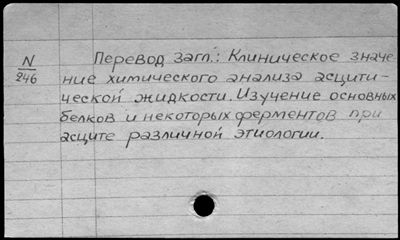 N
246
Перевод загл.: Клиническое значе-
ние химического анализа асцити-
ческой жидкости. Изучение основных
белков и некоторых ферментов при
асците различной этиологии.